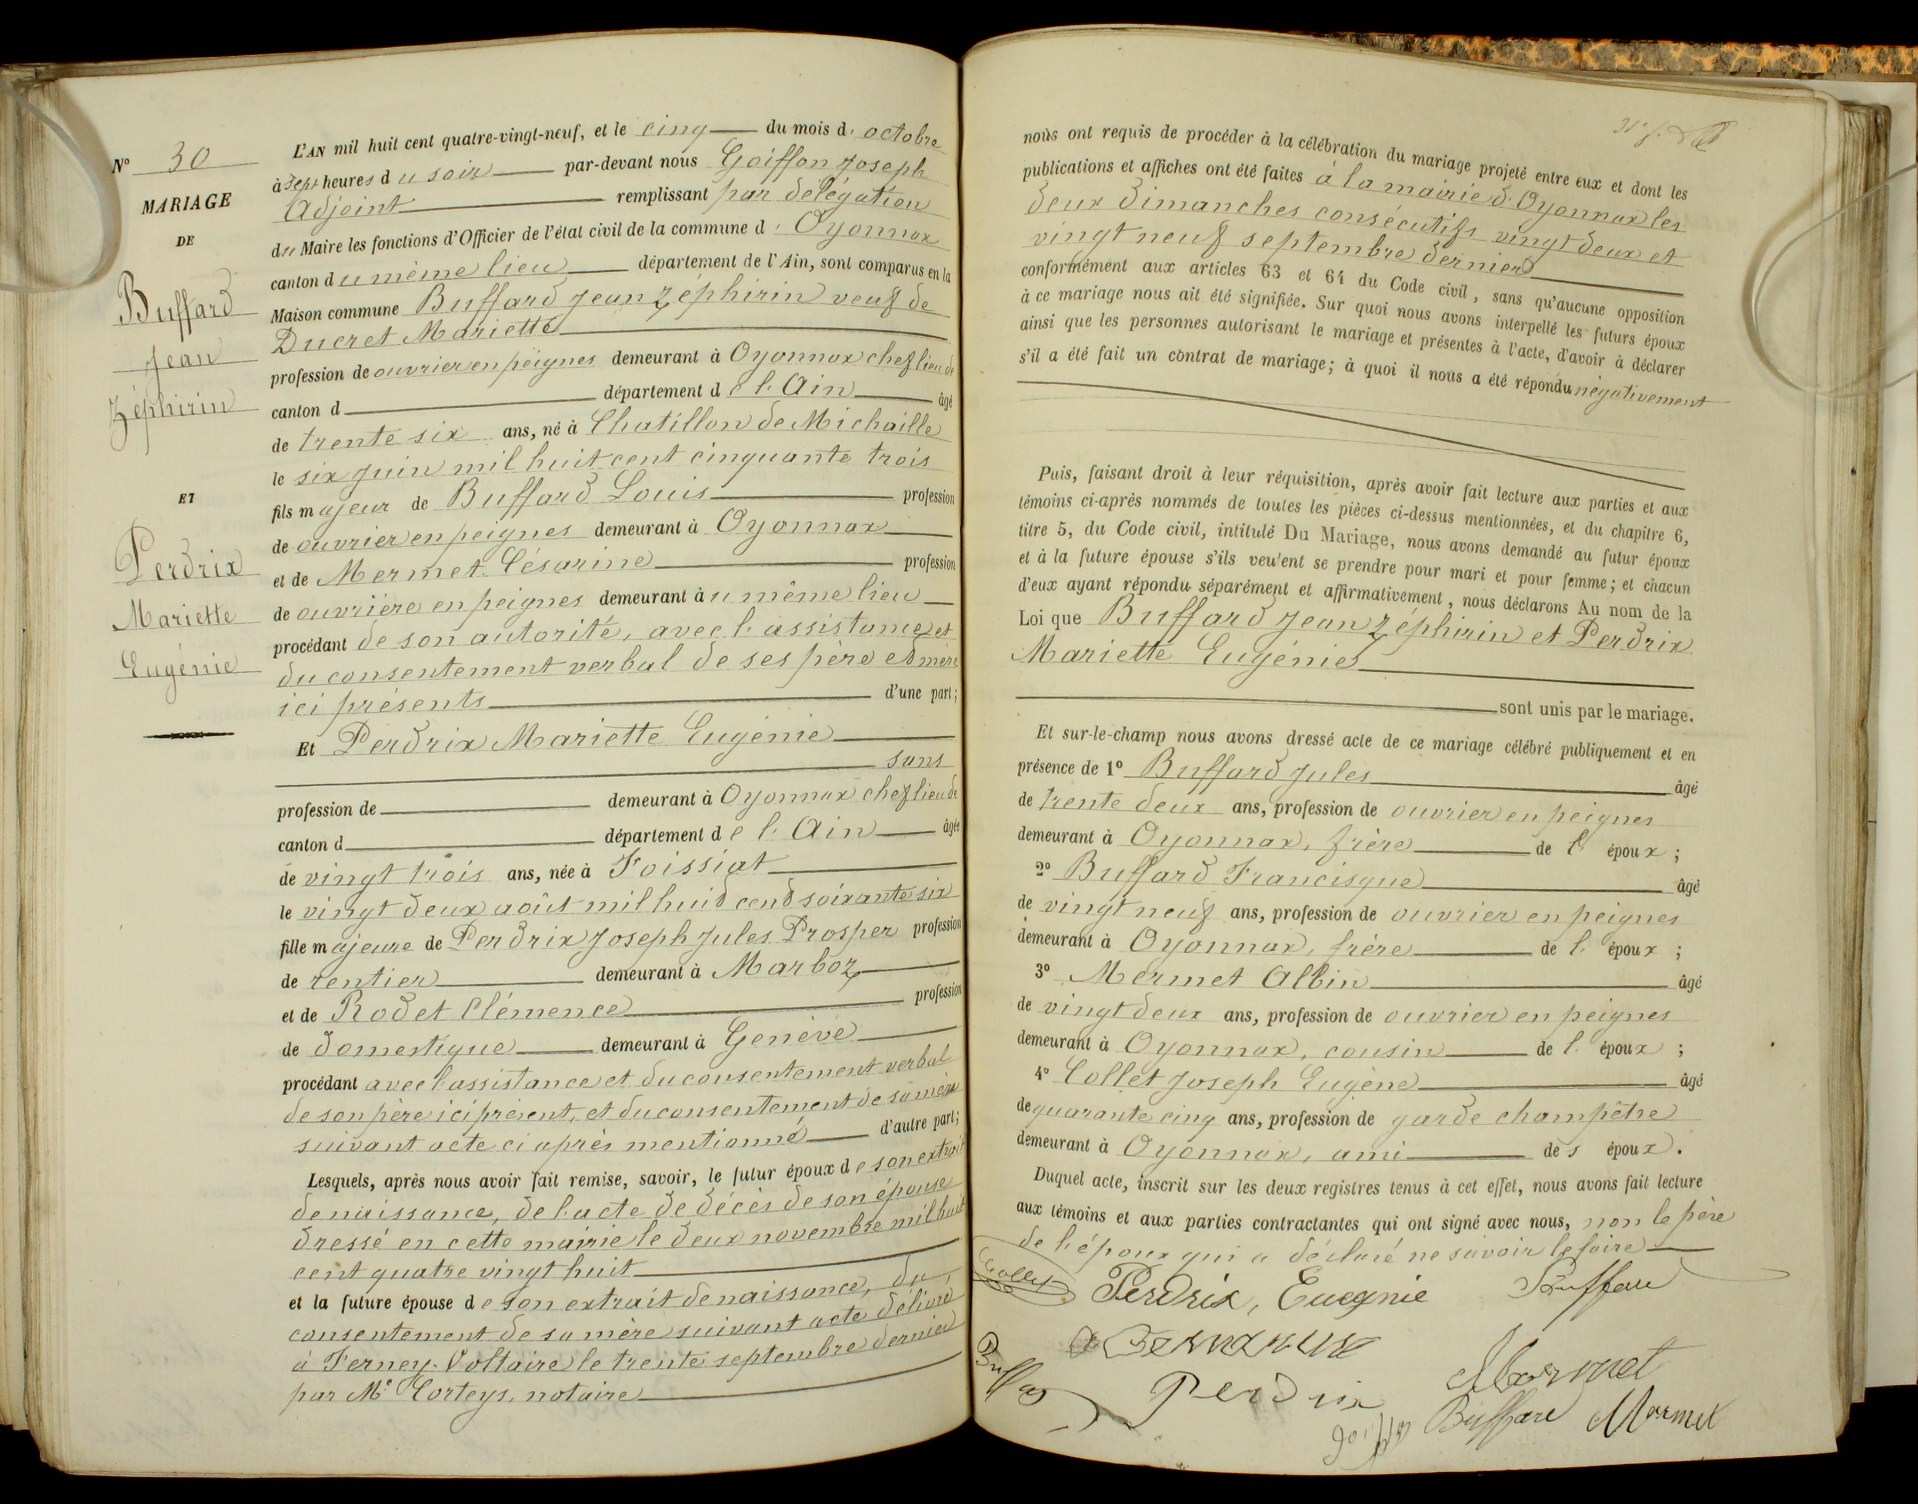 N° 30
MARIAGE
DE
Buffard
Jean
Zéphirin
ET
Perdrix
Mariette
Eugénie
L'AN mil huit cent quatre-vingt-neuf, et le cinq du mois d' octobre
à sept heures du soir par-devant nous Goiffon Joseph
Adjoint remplissant par délégation
du Maire les fonctions d'Officier de l'état civil de la commune d' Oyonnax
canton du même lieu département de l'Ain, sont comparus en la
Maison commune Buffard Jean Zephirin veuf de
Ducret Mariette
profession de ouvrier en peignes demeurant à Oyonnax chef lieu de
canton d département de l'Ain âgé
de trente six ans, né à Chatillon de Michaille
le six Juin mil huit cent cinquante trois
fils majeur de Buffard Louis profession
de ouvrier en peignes demeurant à Oyonnax
et de Mermet Césarine profession
de ouvrière en peignes demeurant au même lieu
procédant de son autorité, avec l'assistance et
du consentement verbal de ses père et mère
ici présents d'une part;
Et Perdrix Mariette Eugénie
sans
profession de demeurant à Oyonnax chef lieu de
canton d département de l'Ain âgée
de vingt trois ans, née à Foissiat
le vingt deux août mil huit cent soixante six
fille majeure de Perdrix Joseph Jules Prosper profession
de rentier demeurant à Marboz
et de Rodet Clémence profession
de domestique demeurant à Genève
procédant avec l'assistance et du consentement verbal
de son père ici présent, et du consentement de sa mère
suivant acte ci après mentionné d'autre part;
Lesquels, après nous avoir fait remise, savoir, le futur époux de son extrait
de naissance, de l'acte de décès de son épouse
dressé en cette mairie le deux novembre mil huit
cent quatre vingt huit
et la future épouse de son extrait de naissance, du
consentement de sa mère suivant acte délivré
à Ferney-Voltaire le trente septembre dernier
par Me Corteys, notaire
nous ont requis de procéder à la célébration du mariage projeté entre eux et dont les
publications et affiches ont été faites à la mairie d'Oyonnax les
deux dimanches consécutifs vingt deux et
vingt neuf septembre dernier
conformément aux articles 63 et 64 du Code civil, sans qu'aucune opposition
à ce mariage nous ait été signifiée. Sur quoi nous avons interpellé les futurs époux
ainsi que les personnes autorisant le mariage et présentes à l'acte, d'avoir à déclarer
s'il a été fait un contrat de mariage; à quoi il nous a été répondu négativement
Puis, faisant droit à leur réquisition, après avoir fait lecture aux parties et aux
témoins ci-après nommés de toutes les pièces ci-dessus mentionnées, et du chapitre 6,
titre 5, du Code civil, intitulé Du Mariage, nous avons demandé au futur époux
et à la future épouse s'ils veulent se prendre pour mari et pour femme; et chacun
d'eux ayant répondu séparément et affirmativement, nous déclarons Au nom de la
Loi que Buffard Jean Zéphirin et Perdrix
Mariette Eugénie
sont unis par le mariage.
Et sur-le-champ nous avons dressé acte de ce mariage célébré publiquement et en
présence de 1° Buffard Jules âgé
de trente deux ans, profession de ouvrier en peignes
demeurant à Oyonnax, frère de l' époux;
2° Buffard Francisque âgé
de vingt neuf ans, profession de ouvrier en peignes
demeurant à Oyonnax, frère de l' époux;
3° Mermet Albin âgé
de vingt deux ans, profession de ouvrier en peignes
demeurant à Oyonnax, cousin de l' époux;
4° Collet Joseph Eugène âgé
de quarante cinq ans, profession de garde champêtre
demeurant à Oyonnax, ami des époux.
Duquel acte, inscrit sur les deux registres tenus à cet effet, nous avons fait lecture
aux témoins et aux parties contractantes qui ont signé avec nous, non le père
de l'époux qui a déclaré ne savoir le faire
Collet Perdrix, Eugenie Buffard
Perdrix Mermet
Buffard Mermet